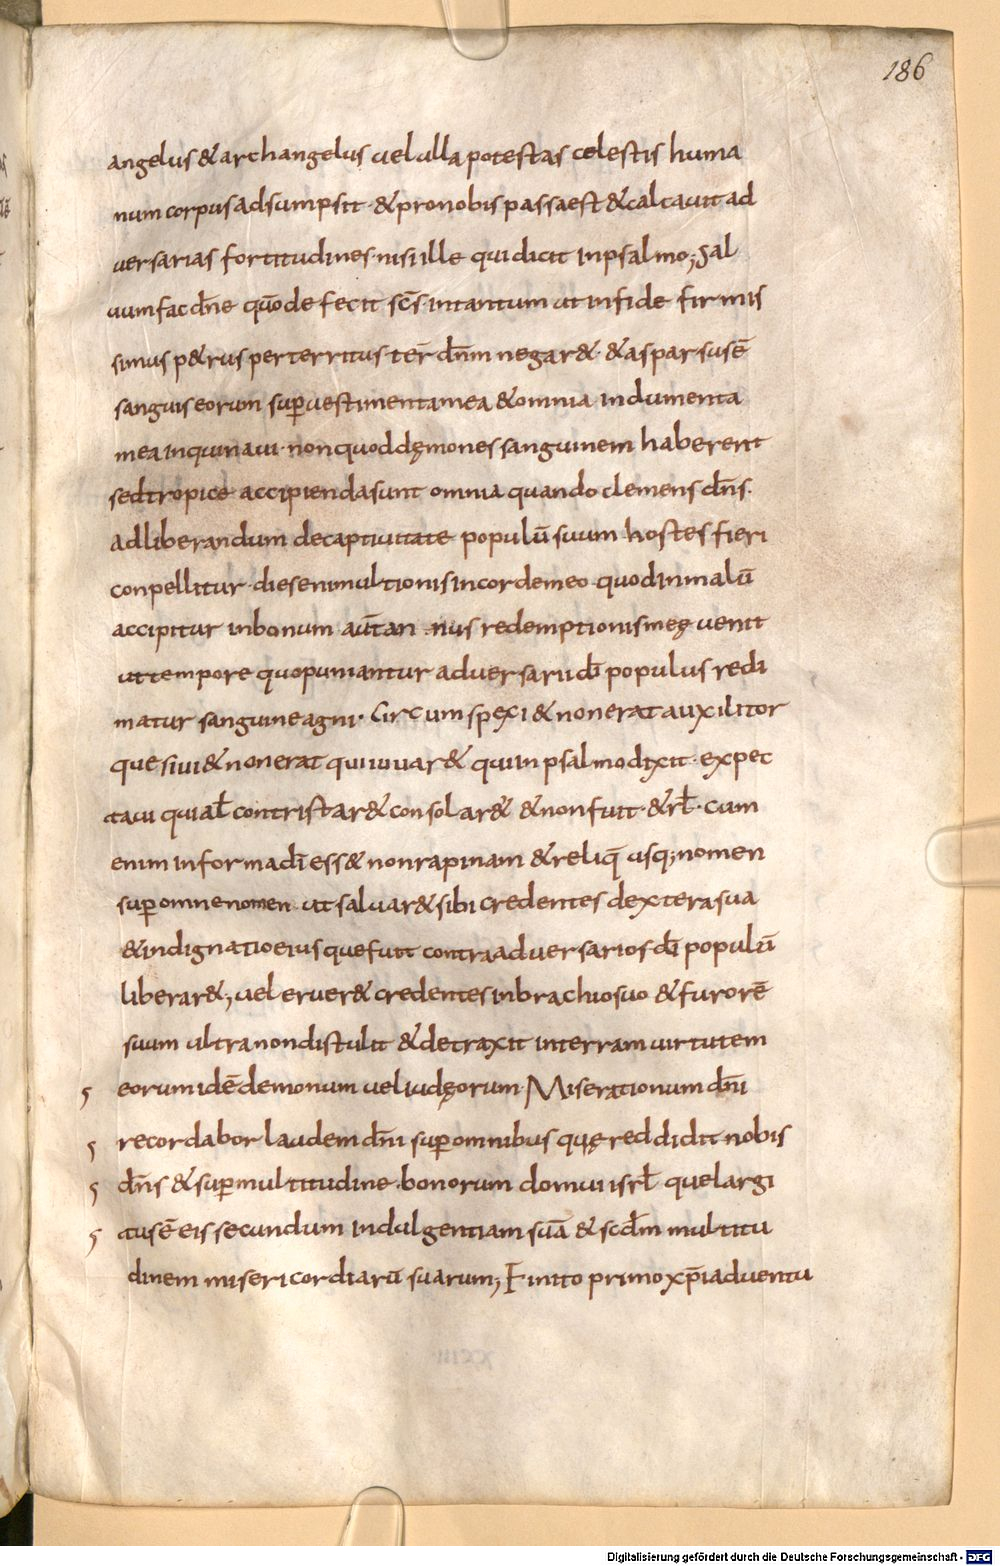 186
angelus & archangelus uel ulla potestas celestis huma
num corpus adsumpsit · & pro nobis passa est & calcauit ad
uersarias fortitudines · nisi ille qui dicit in psalmo; Sal
uum fac dn̄e qūo defecit sc̄s · intantum ut in fide firmis
simus p&rus perterritus ter dn̄m negar& · & aspersus ē
sanguis eorum sup uestimenta mea & omnia indumenta
mea inquinaui · non quod dęmones sanguinem haberent
sed tropice accipienda sunt omnia quando clemens dn̄s ·
ad liberandum de captiuitate populū suum hostes fieri
conpellitur · dies enim ultionis in corde meo · quod in malū
accipitur in bonum aūt annus redemptionis meę uenit
ut tempore quo puniantur aduersarii dī populus redi
matur sanguine agni · Circumspexi & non erat auxilitor
quesiui & non erat qui iuuar& qui in psalmo dixit · expec
taui qui al̄ contristar& consolar& & non fuit · & rl̄ · cum
enim in forma dī ess& non rapinam & reliq̄ usq; nomen
sup omne nomen ut saluar& sibi credentes dextera sua
& indignatio eius que fuit contra aduersarios dī populū
liberar&, uel eruer& credentes in brachio suo & furorē
suum ultra non distulit & detraxit in terram uirtutem
5 eorum idē demonum uel iudęorum · Miserationum dn̄i
5 recordabor laudem dn̄i sup omnibus quę reddidit nobis
5 dn̄s & sup multitudine · bonorum domui isrl̄ que largi
5 tus ē eis secundum indulgentiam suā & scd̄m multitu
dinem misericordiarū suarum; Finito primo xp̄i aduentu
Digitalisierung gefördert durch die Deutsche Forschungsgemeinschaft - DFG